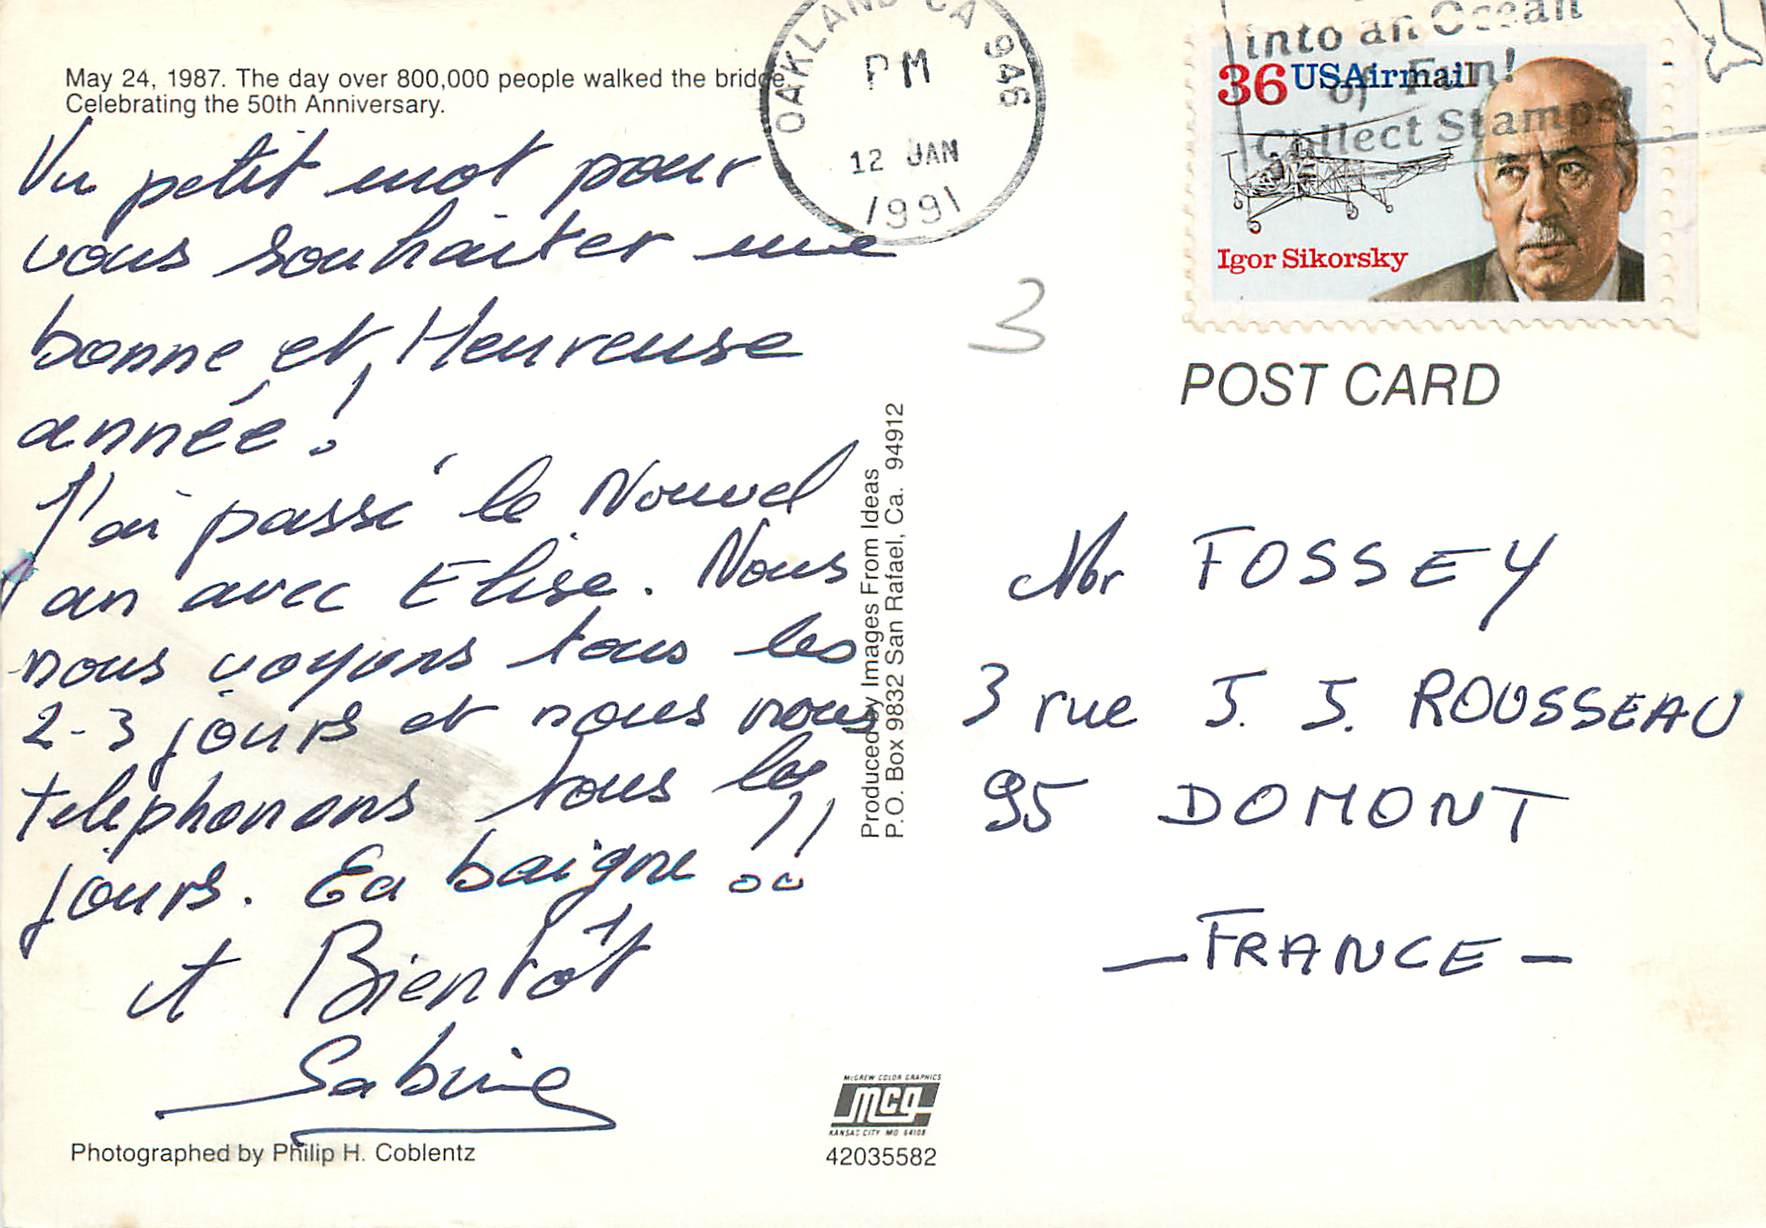 May 24, 1987. The day over 800,000 people walked the bridge
Celebrating the 50th Anniversary.
Un petit mot pour
vous souhaiter une
bonne et Heureuse
année !
J'ai passé le Nouvel
an avec Elise. Nous
nous voyons tous les
2-3 jours et nous nous
téléphonons tous les
jours. Ca baigne !!
A Bientôt
Sabine
Photographed by Philip H. Coblentz
OAKLAND CA 946
PM
12 JAN
1991
into an Ocean
of Fun!
Collect Stamps!
36 USAirmail
Igor Sikorsky
3
POST CARD
Produced by Images From Ideas
P.O. Box 9832 San Rafael, Ca. 94912
Mr FOSSEY
3 rue J. J. ROUSSEAU
95 DOMONT
— FRANCE —
McGREW COLOR GRAPHICS
mcg
KANSAS CITY MO 64108
42035582